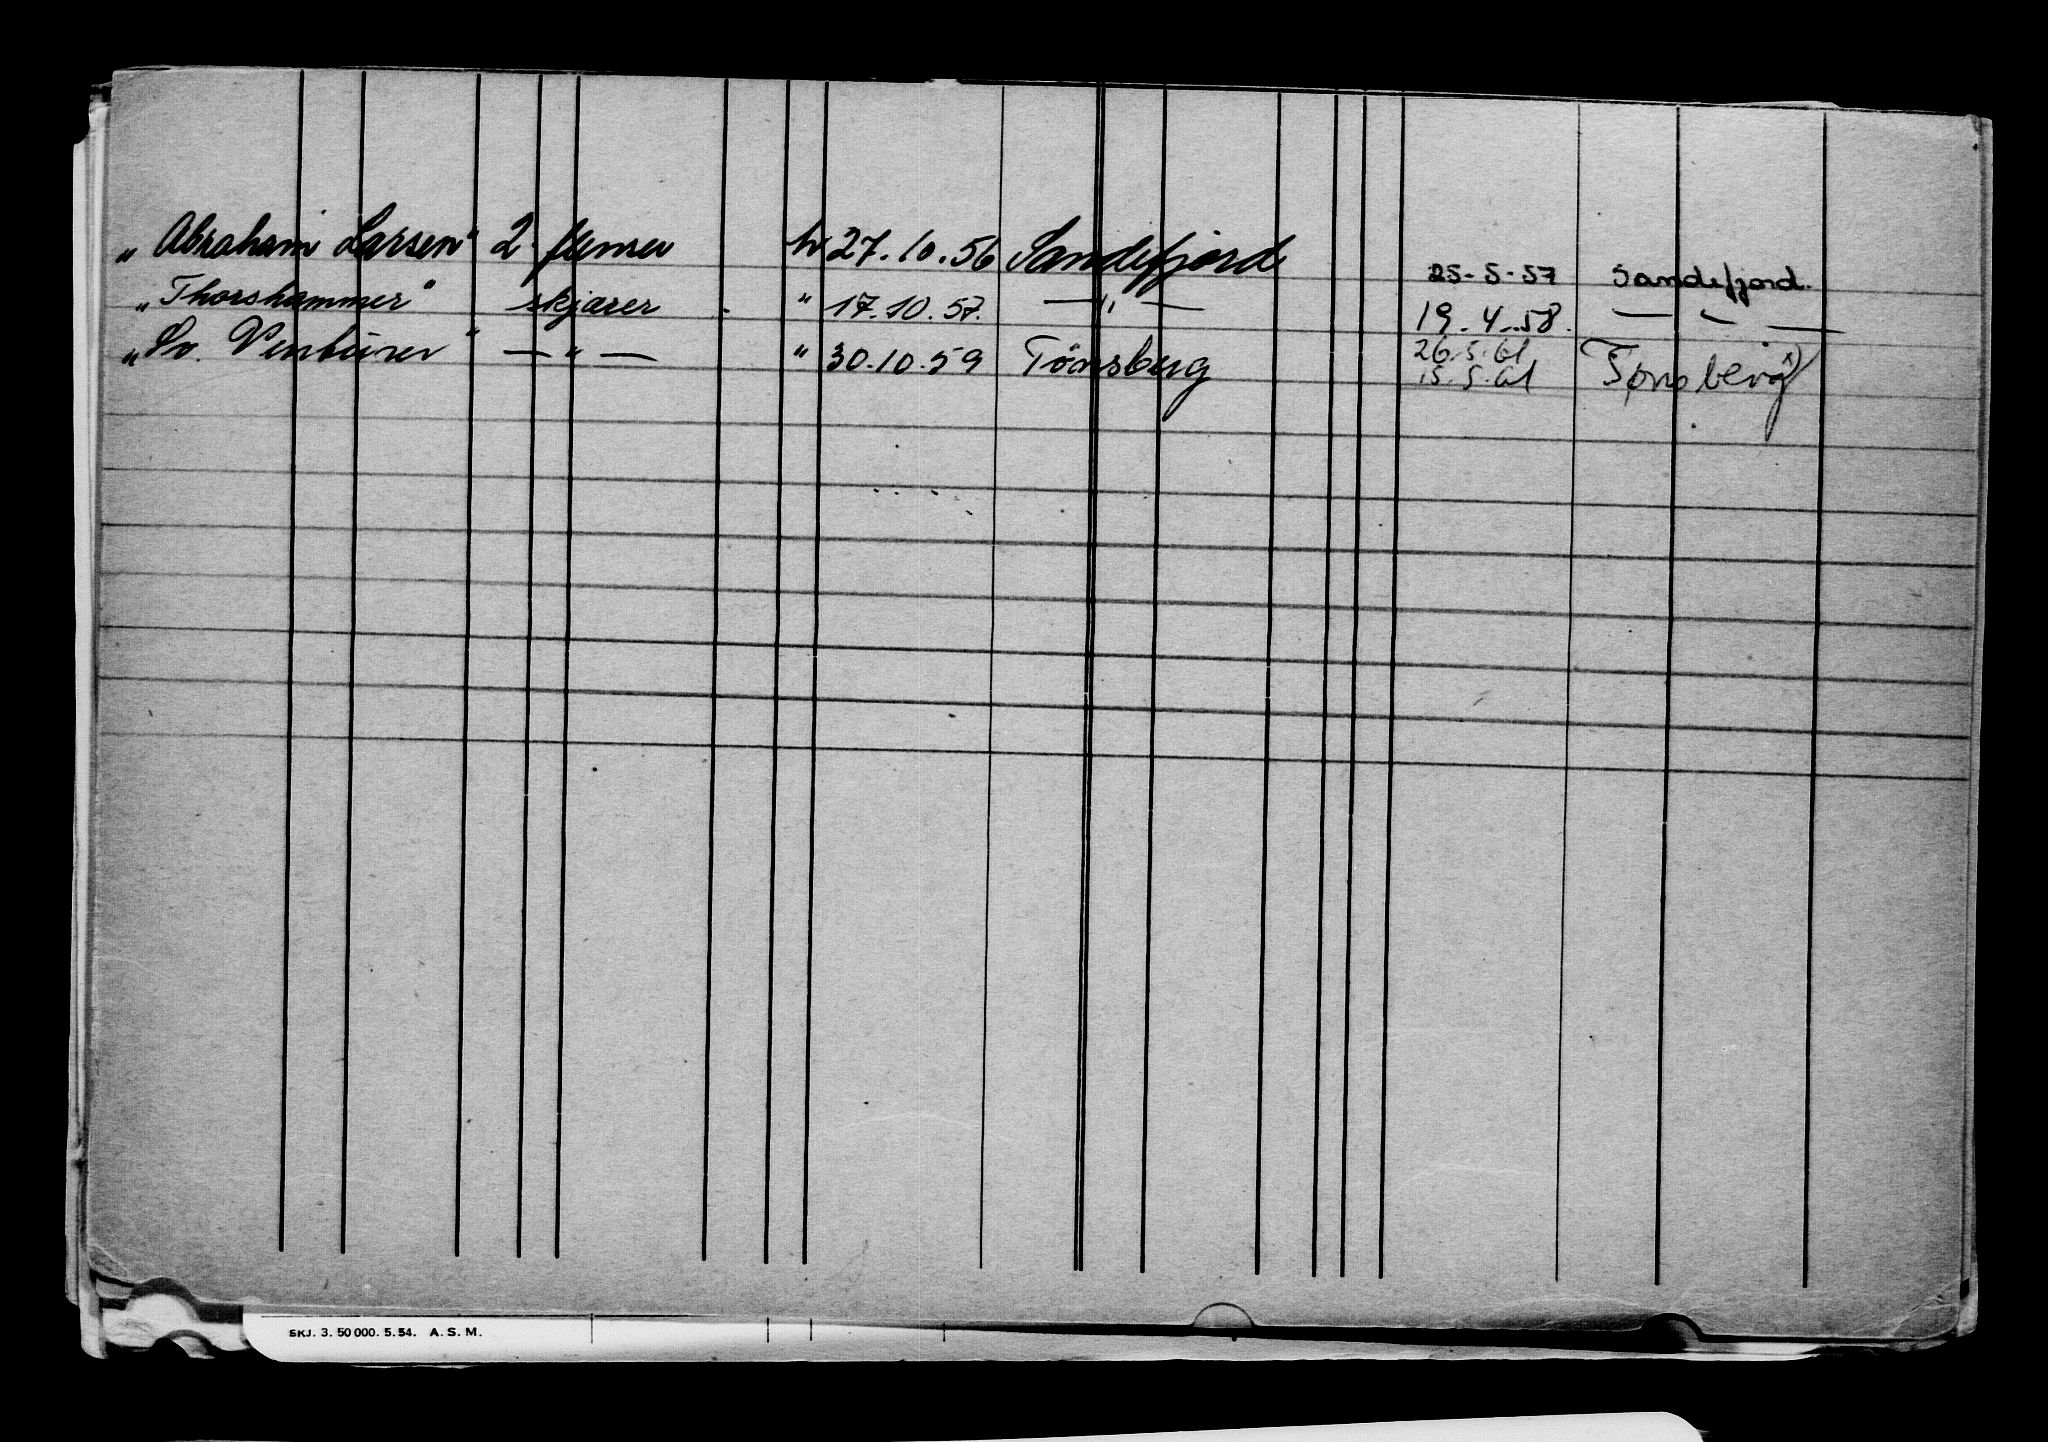 „Abraham Larsen" 2. flenser hv 27.10.56 Sandefjord 25-5-57 Sandefjord.
„Thorshammer" skjærer " 17.10.57. — " — 19.4.58. — " —
„Sv. Venturer" — " — " 30.10.59 Tönsberg 26.5.61 Tønsberg x)
15.5.61
SKJ. 3. 50 000. 5. 54. A. S. M.